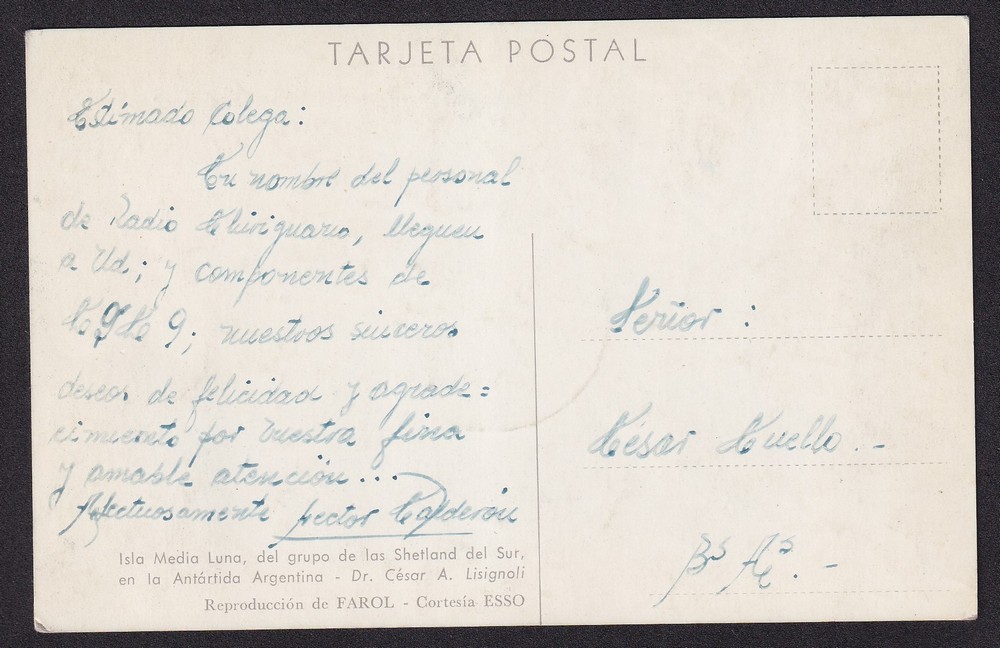 TARJETA POSTAL
Estimado Colega:
En nombre del personal
de Radio Chiriguano, lleguen
a Ud; y componentes de
9; nuestros sinceros
deseos de felicidad y agrade=
cimiento por vuestra fina
y amable atención...
Afectuosamente Hector Calderón
Isla Media Luna, del grupo de las Shetland del Sur,
en la Antártida Argentina - Dr. César A. Lisignoli
Reproducción de FAROL - Cortesía ESSO
Señor:
César Cuello.-
Bs As.-